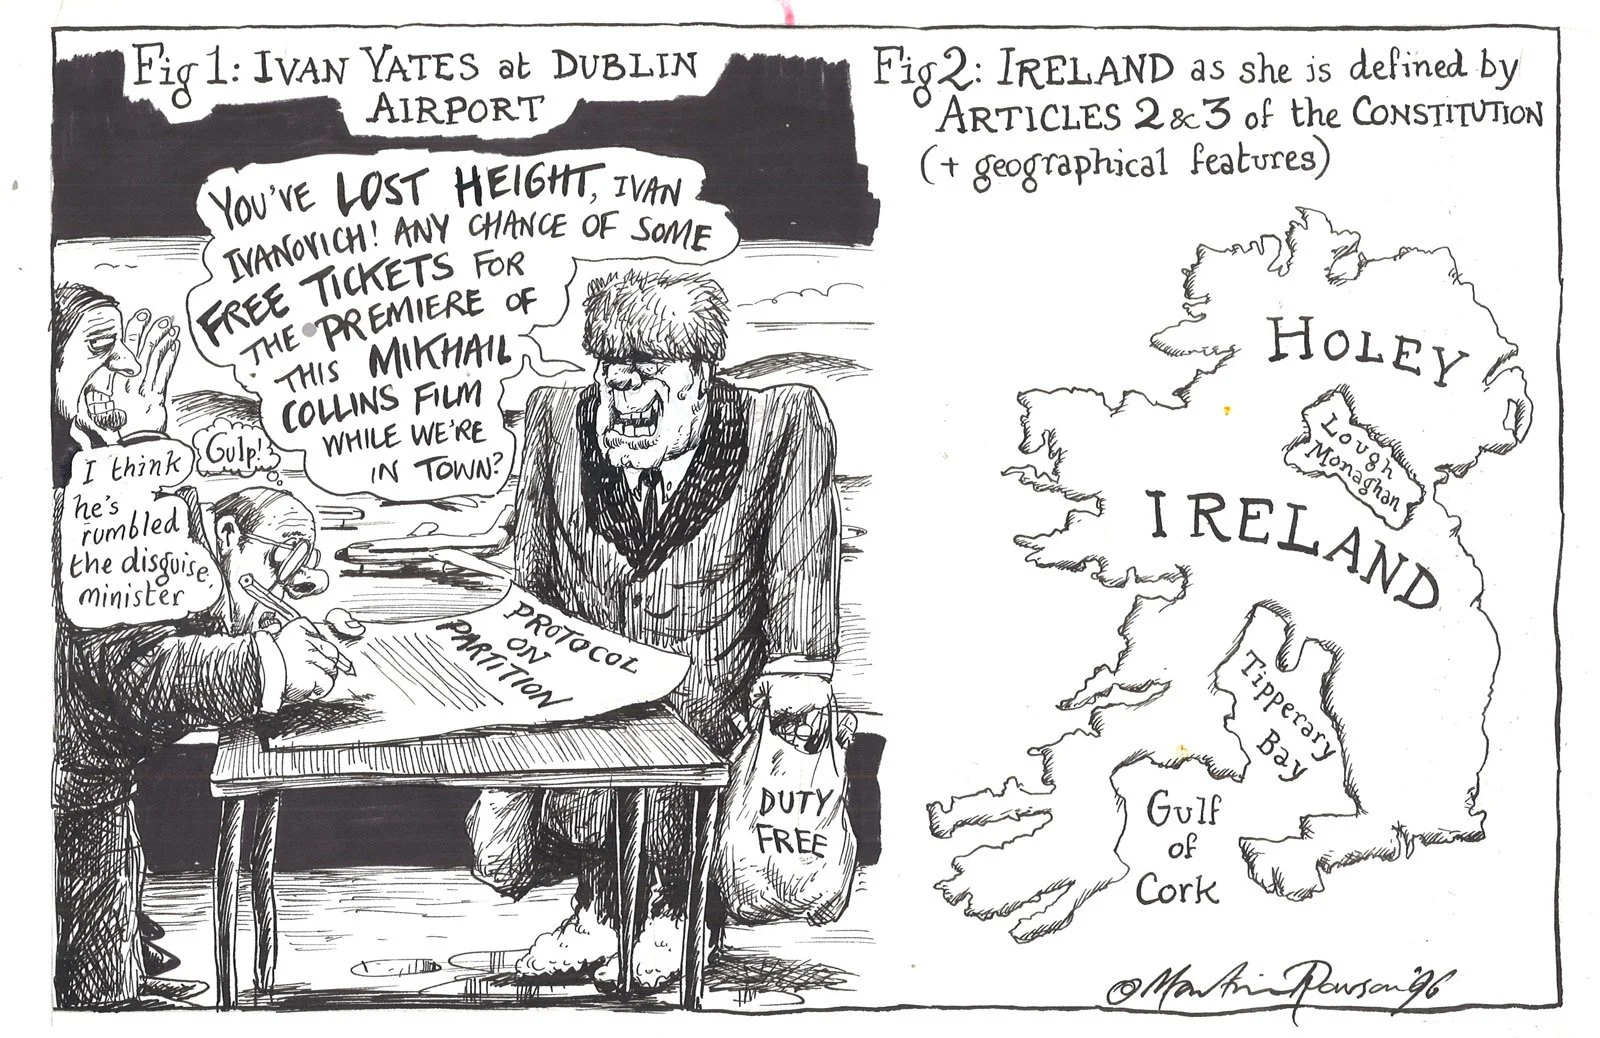 Fig 1: IVAN YATES at DUBLIN
AIRPORT
YOU'VE LOST HEIGHT, IVAN
IVANOVICH! ANY CHANCE OF SOME
FREE TICKETS FOR
THE PREMIERE OF
THIS MIKHAIL
COLLINS FILM
WHILE WE'RE
IN TOWN?
Gulp!
I think
he's
rumbled
the disguise,
minister
PROTOCOL
ON
PARTITION
DUTY
FREE
Fig 2: IRELAND as she is defined by
ARTICLES 2 & 3 of the CONSTITUTION
(+ geographical features)
HOLEY
Lough
Monaghan
IRELAND
Tipperary
Bay
Gulf
of
Cork
© Martin Rowson '96